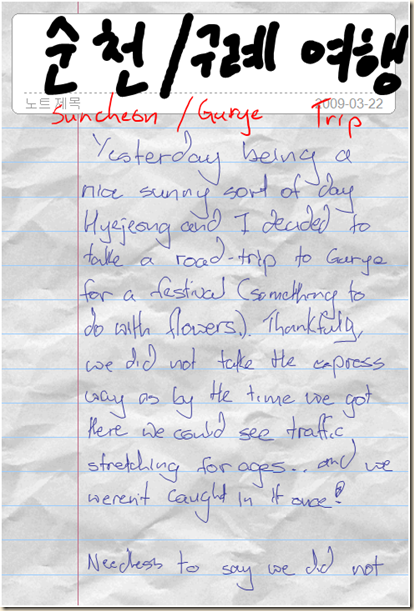 순천/구례 여행
노트 제목 2009-03-22
Suncheon / Gurye Trip
Yesterday being a
nice sunny sort of day
Hyejeong and I decided to
take a road-trip to Gurye
for a festival (something to
do with flowers). Thankfully,
we did not take the express
way as by the time we got
there we could see traffic
stretching for ages... and we
weren't caught in it once!
Needless to say we did not